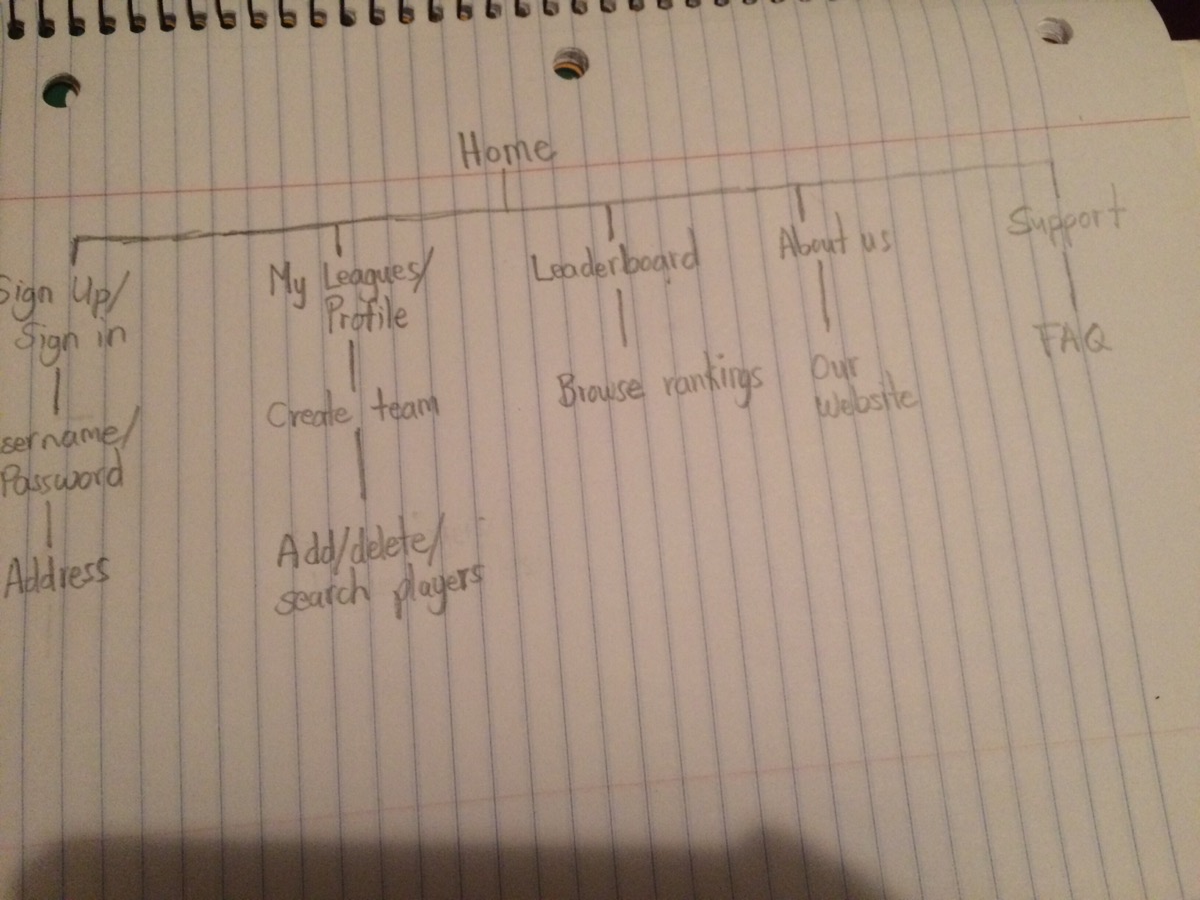 Home
Sign Up/
Sign in
sername/
Password
Address
My Leagues/
Profile
Create team
Add/delete/
search players
Leaderboard
Browse rankings
About us
Our
website
Support
FAQ